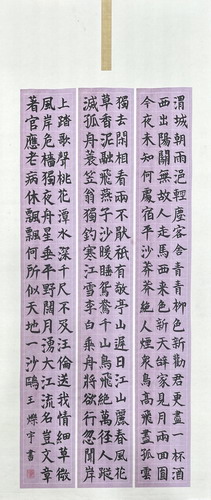 渭城朝雨浥輕塵客舍青青柳色新勸君更盡一杯酒
西出陽關無故人走馬西來欲到天辭家見月兩回圓
今夜未知何處宿平沙莽莽絕人煙眾鳥高飛盡孤雲
獨去閒相看兩不厭祇有敬亭山遲日江山麗春風花
草香泥融飛燕子沙暖睡鴛鴦千山鳥飛絕萬徑人蹤
滅孤舟蓑笠翁獨釣寒江雪李白乘舟將欲行忽聞岸
上踏歌聲桃花潭水深千尺不及汪倫送我情細草微
風岸危檣獨夜舟星垂平野闊月湧大江流名豈文章
著官應老病休飄飄何所似天地一沙鷗王爍宇書